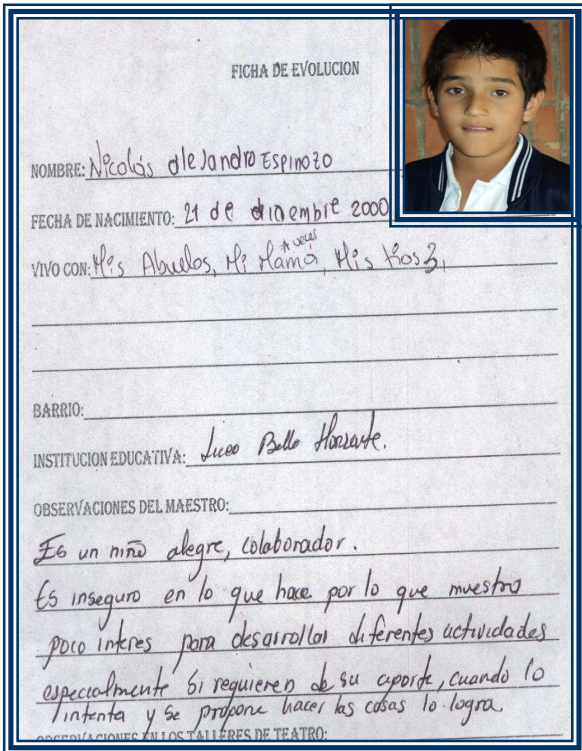 FICHA DE EVOLUCION
NOMBRE: Nicolás alejandro Espinozo
FECHA DE NACIMIENTO: 21 de diciembre 2000
A veces
VIVO CON: Mis Abuelos, Mi Mamá, Mis tios 3,
BARRIO:
INSTITUCION EDUCATIVA: Liceo Bello Horizonte.
OBSERVACIONES DEL MAESTRO:
Es un niño alegre, colaborador.
Es inseguro en lo que hace por lo que muestra
poco interes para desarrollar diferentes actividades
especialmente si requieren de su aporte, cuando lo
intenta y se propone hacer las cosas lo logra.
OBSERVACIONES EN LOS TALLERES DE TEATRO: